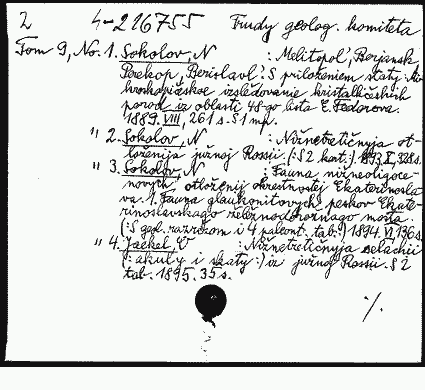 2 4-216755 Trudy geolog. komiteta
Tom 9, No. 1. Sokolov, N : Melitopol', Berjansk,
Perekop, Berislavl'. S priloženiem staty: Mi-
kroskopičeskoe izsledovanie kristalličeskich
porod iz oblasti 48-go lista E. Fedorova.
1889. VIII, 261 s. S 1 mp.
" 2. Sokolov, N : Nižnetretičnyja ot-
loženija južnoj Rossii. (: S 2 kart.:) 1893. X, 328 s.
" 3. Sokolov, N : Fauna nižneoligoce-
novych otloženij okrestnostej Ekaterinosla-
va. 1. Fauna glaukonitovych peskov Ekate-
rinoslavskago železnodorožnago mosta.
(: S geol. razrezom i 4 paleont. tab.:) 1894. VI, 136 s.
" 4. Jaekel, O : Nižnetretičnyja selachii
(: akuly i skaty :) iz južnoj Rossii. S 2
tab. 1895. 35 s.